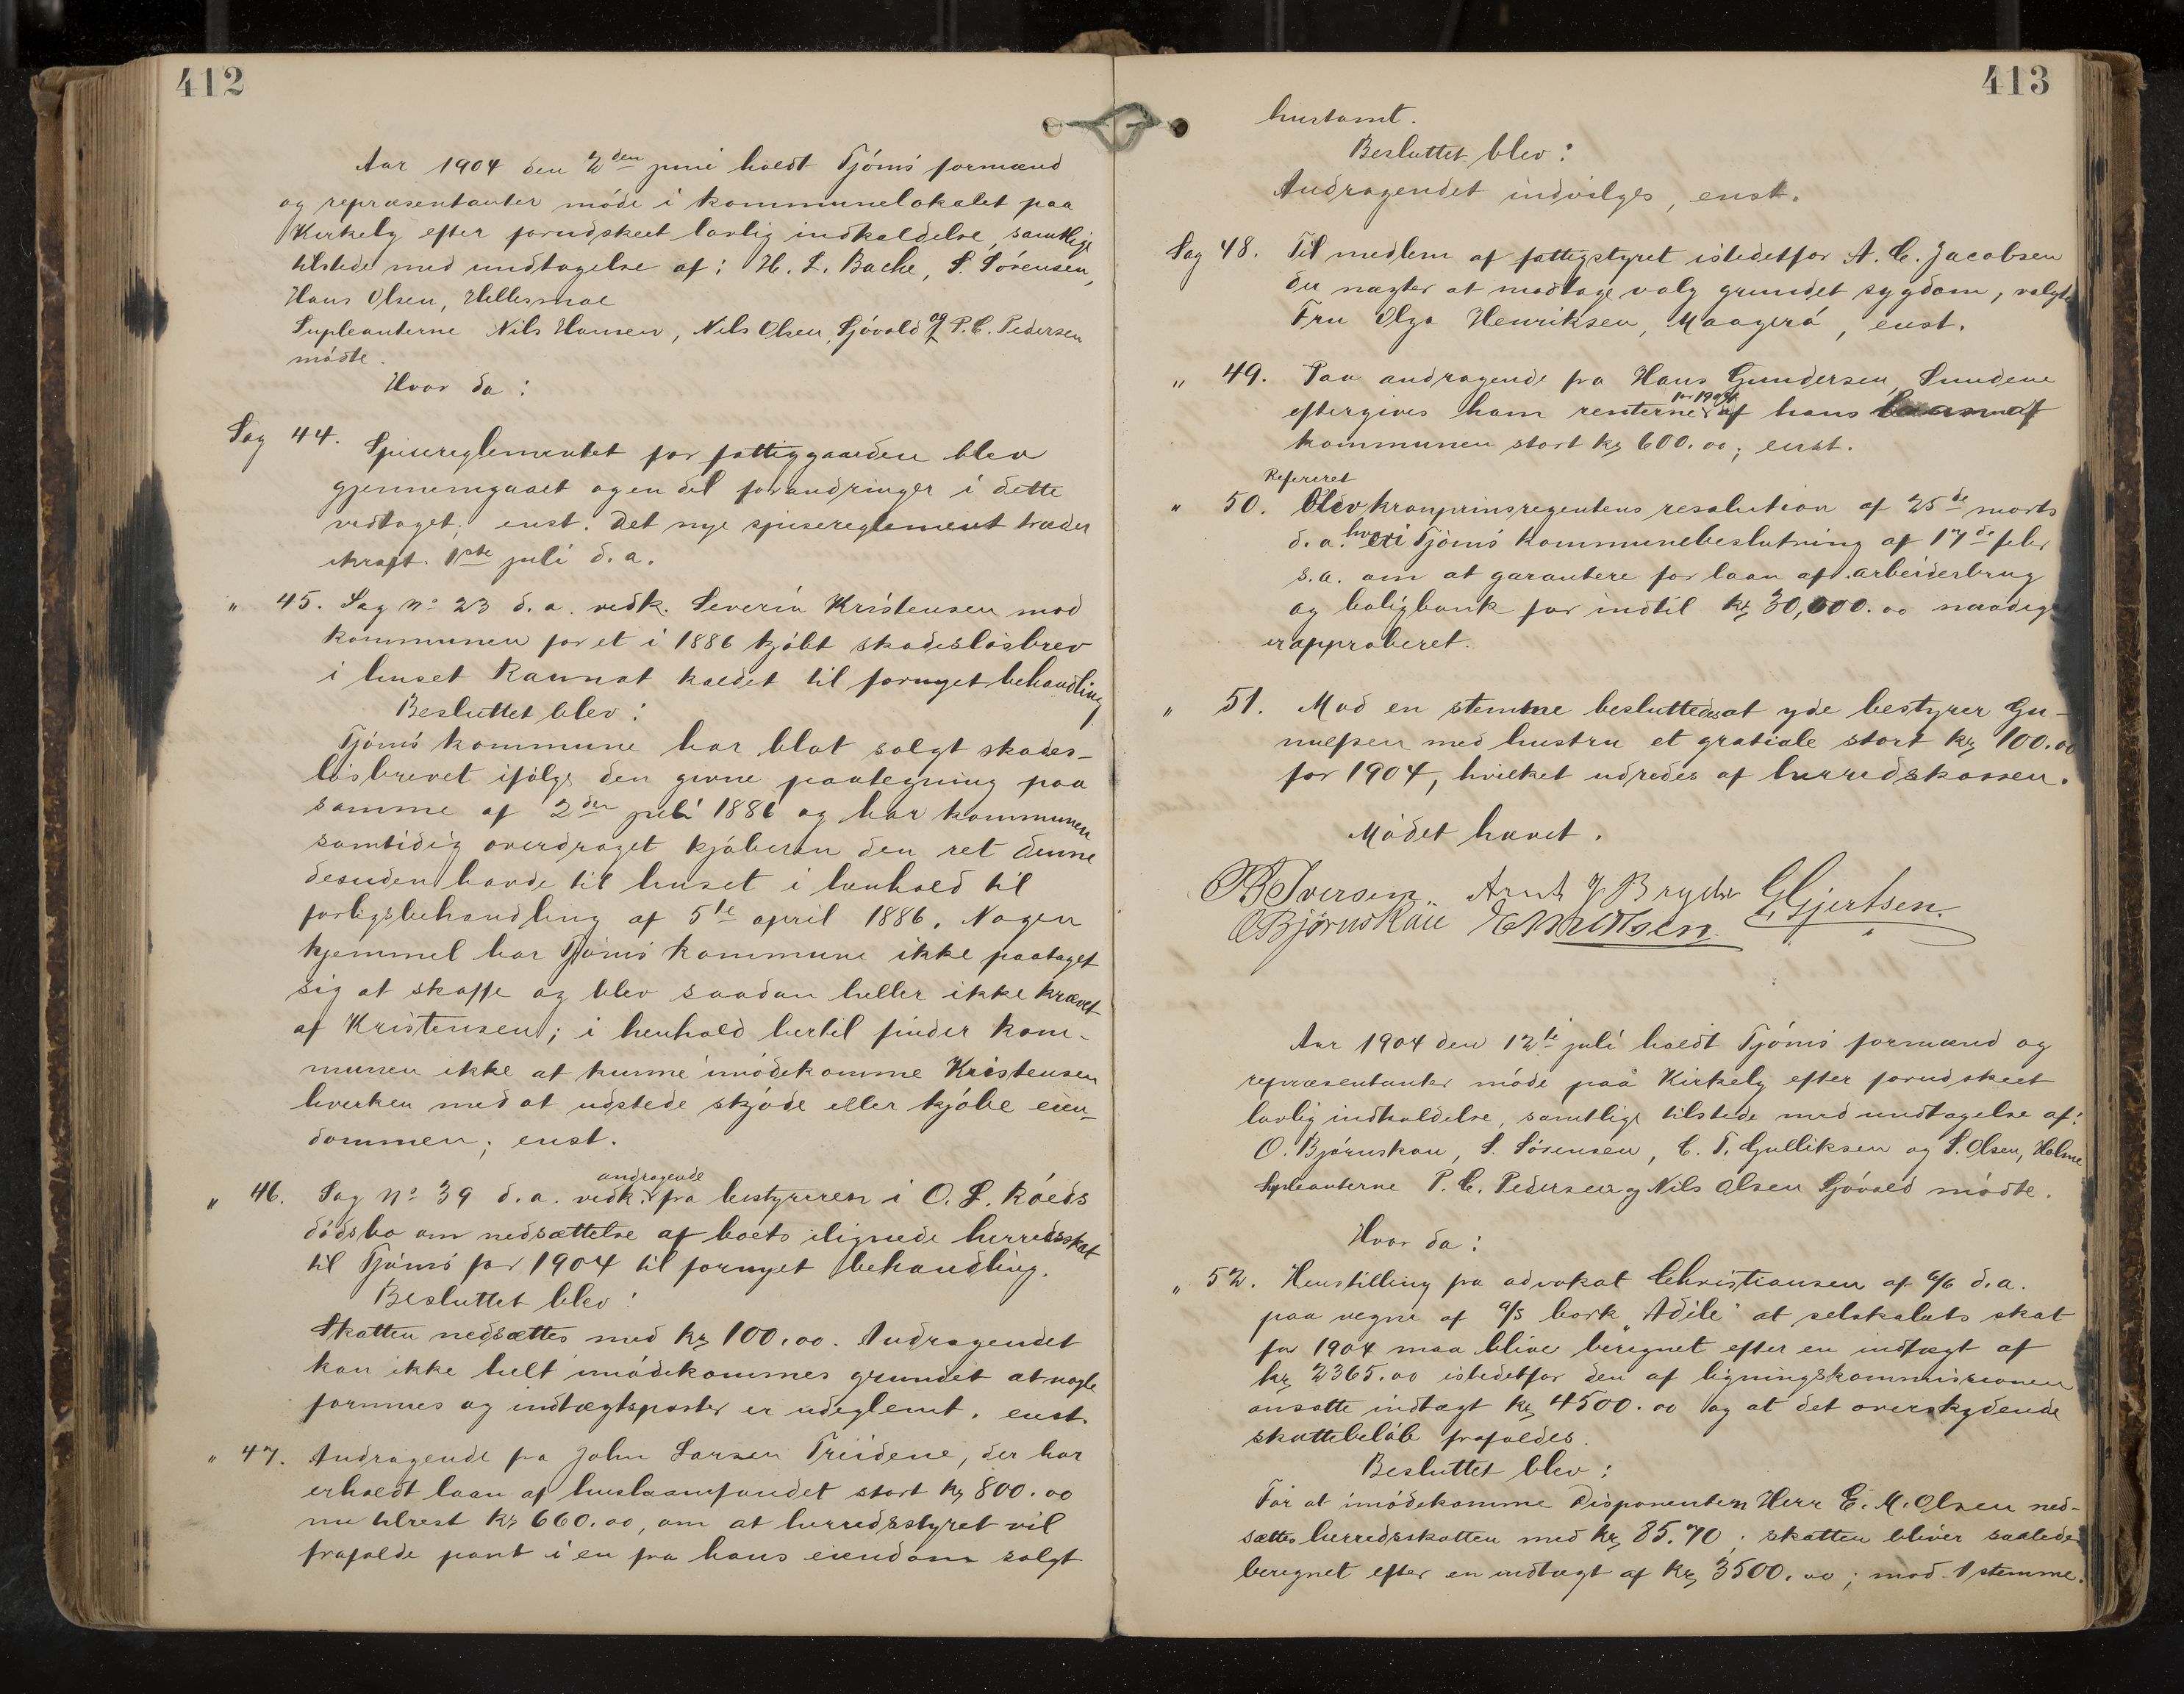 412
Aar 1904 den 2den juni holdt Tjømø formænd
og repræsentanter møde i kommunelokalet paa
Kirkely efter forudskeet lovlig indkaldelse, samtlige
tilstede med undtagelse af: H. L. Bache, S. Sørensen,
Hans Olsen, Hellesmoe
Supleanterne Nils Hansen, Nils Olsen, Sjøvold og P. C. Pedersen
mødte.
Hvor da:
Sag 44. Spisereglementet for fattiggaarden blev
gjennemgaaet og en del forandringer i dette
vedtaget; enst. Det nye spisereglement træder
ikraft 1ste juli d. a.
" 45. Sag No 23 d. a. vedk. Severin Kristensen mod
kommunen for et i 1886 kjøbt skadesløsbrev
i huset Ramnat kaldet til fornyet behandling
Besluttet blev:
Tjømø kommune har blot solgt skades-
løsbrevet ifølge den givne paategning paa
samme af 2den juli 1886 og har kommunen
samtidig overdraget kjøberen den ret denne
desuden havde til huset i henhold til
forligsbehandling af 5te april 1886. Nogen
hjemmel har Tjømø kommune ikke paataget
sig at skaffe og blev saadan heller ikke krævet
af Kristensen; i henhold hertil finder kom-
munen ikke at kunne imødekomme Kristensen
hverken med at udstede skjøde eller kjøbe eien-
dommen; enst.
" 46. Sag No 39 d. a. vedk. andragende fra bestyreren i O. L. Røeds
dødsbo om nedsættelse af boets ilignede herredsskat
til Tjømø for 1904 til fornyet behandling.
Besluttet blev:
Skatten nedsættes med kr 100.00. Andragendet
kan ikke helt imødekommes grundet at nogle
formues og indtægtsposter er udeglemt. enst.
" 47. Andragende fra John Larsen Treidene, der har
erholdt laan af huslaanfondet stort kr 800.00
nu tilrest kr 660.00, om at herredsstyret vil
frafalde pant i en fra hans eiendom solgt
413
hustomt.
Besluttet blev:
Andragendet indvilges, enst.
Sag 48. Til medlem af fattigstyret istedetfor A. C. Jacobsen
der nægter at modtage valg grundet sygdom, valgte
Fru Olga Henriksen, Maagerø, enst.
" 49. Paa andragende fra Hans Gundersen, Sundene
eftergives ham renterne for 1904 af hans laan af
kommunen stort kr 600.00; enst.
Refereret
" 50. blev kronprinsregentens resolution af 25de marts
d. a. hvori Tjømø kommunebeslutning af 17de febr
s. a. om at garantere for laan af arbeiderbrug
og boligbank for indtil kr 30,000.00 naadigst
er approberet.
" 51. Mod en stemme besluttedes at yde bestyrer Gu-
nulfsen med hustru et gratiale stort kr 100.00
for 1904, hvilket udredes af herredskassen.
Mødet hævet.
Iversen Arnt J Bryde G Gjertsen
O Bjørnskau E Knudsen
Aar 1904 den 12te juli holdt Tjømø formænd og
repræsentanter møde paa Kirkely efter forudskeet
lovlig indkaldelse, samtlige tilstede med undtagelse af:
O. Bjørnskau, S. Sørensen, C. T. Gulliksen og S. Olsen, Holme
Supleanterne P. C. Pedersen og Nils Olsen Sjøvold mødte.
Hvor da:
" 52. Henstilling fra advokat Christiansen af 6/6 d. a.
paa vegne af a/s bark "Adele" at selskabets skat
for 1904 maa blive beregnet efter en indtægt af
kr 2365.00 istedetfor den af ligningskommissionen
ansatte indtægt kr 4500.00 og at det overskydende
skattebeløb frafaldes.
Besluttet blev:
For at imødekomme Disponenten Herr E. M. Olsen ned-
sættes herredsskatten med kr 85.70; skatten bliver saaledes
beregnet efter en indtægt af kr 3500.00; mod 1 stemme.